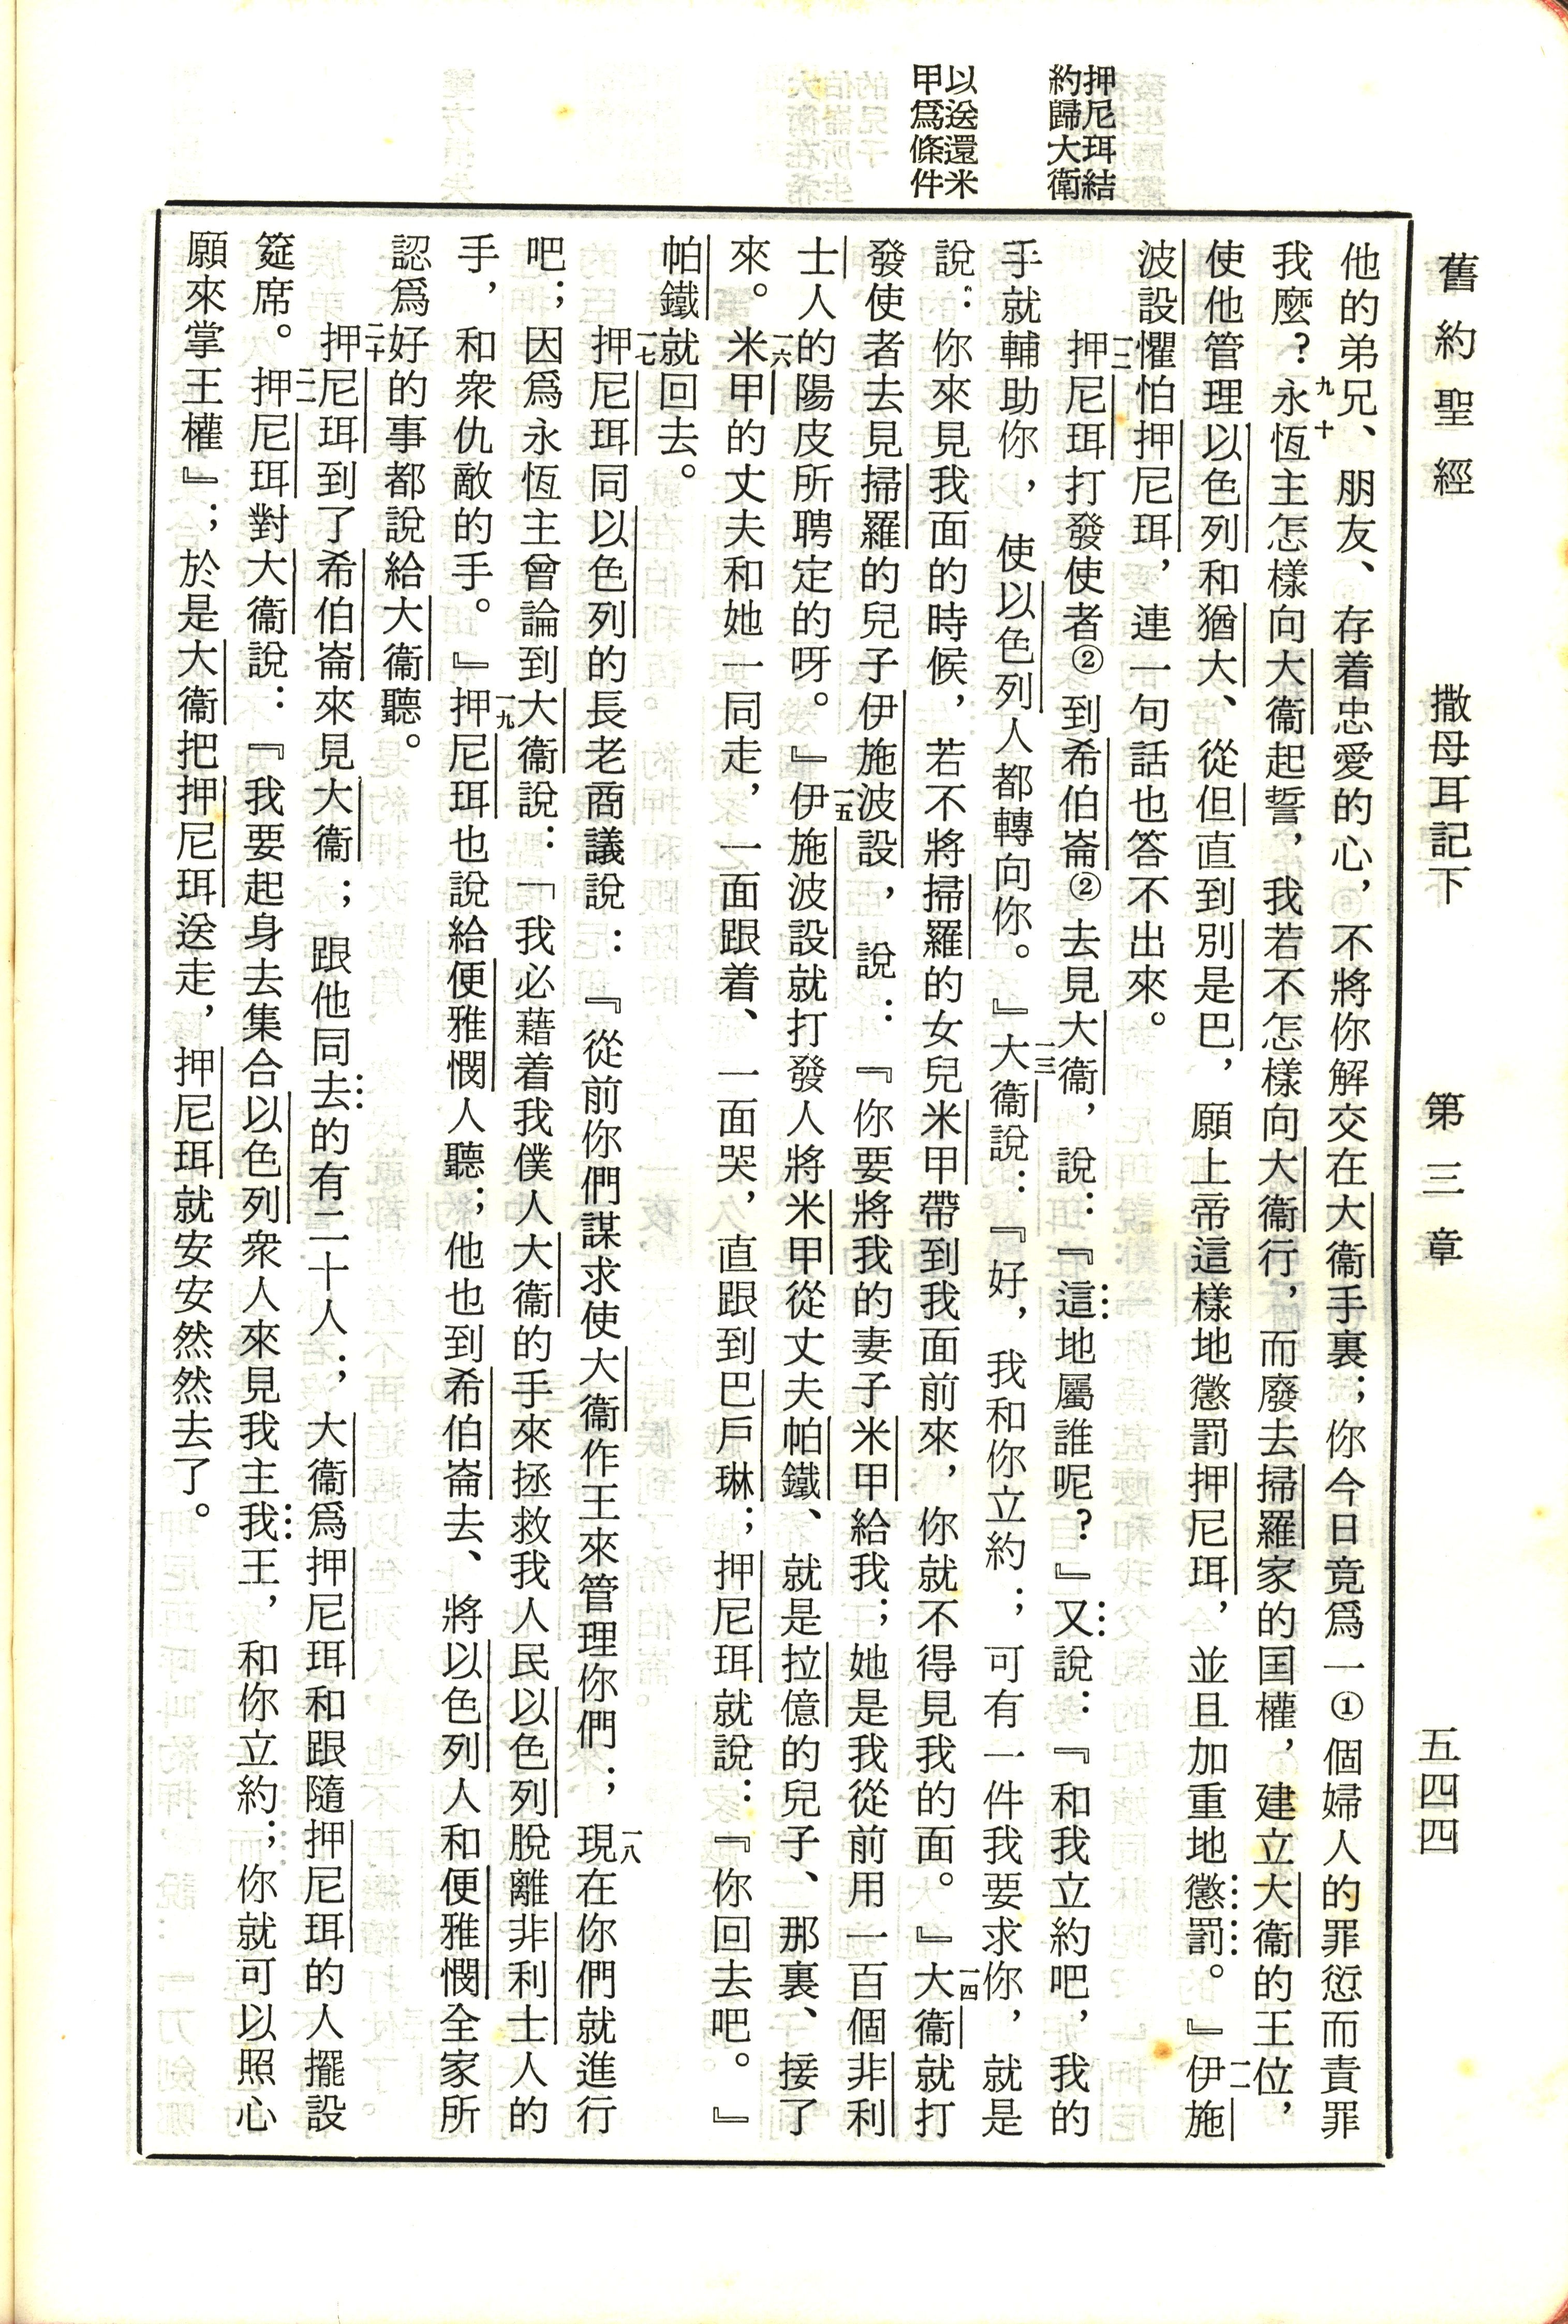 舊約聖經　撒母耳記下　第三章　五四四
押尼珥結
約歸大衛
以送還米
甲爲條件
他的弟兄、朋友、存着忠愛的心，不將你解交在大衞手裏；你今日竟爲一①個婦人的罪愆而責罪
我麼？九十永恆主怎樣向大衞起誓，我若不怎樣向大衞行，而廢去掃羅家的国權，建立大衞的王位，
使他管理以色列和猶大、從但直到別是巴，願上帝這樣地懲罰押尼珥，並且加重地懲罰。』一一伊施
波設懼怕押尼珥，連一句話也答不出來。
一二押尼珥打發使者②到希伯崙②去見大衞，說：『這地屬誰呢？』又說：『和我立約吧，我的
手就輔助你，使以色列人都轉向你。』一三大衞說：『好，我和你立約；可有一件我要求你，就是
說：你來見我面的時候，若不將掃羅的女兒米甲帶到我面前來，你就不得見我的面。』一四大衞就打
發使者去見掃羅的兒子伊施波設，說：『你要將我的妻子米甲給我；她是我從前用一百個非利
士人的陽皮所聘定的呀。』一五伊施波設就打發人將米甲從丈夫帕鐵、就是拉億的兒子、那裏、接了
來。一六米甲的丈夫和她一同走，一面跟着、一面哭，直跟到巴戶琳；押尼珥就說：『你回去吧。』
帕鐵就回去。
一七押尼珥同以色列的長老商議說：『從前你們謀求使大衞作王來管理你們；一八現在你們就進行
吧；因爲永恆主曾論到大衞說：「我必藉着我僕人大衞的手來拯救我人民以色列脫離非利士人的
手，和衆仇敵的手。』一九押尼珥也說給便雅憫人聽；他也到希伯崙去、將以色列人和便雅憫全家所
認爲好的事都說給大衞聽。
二十押尼珥到了希伯崙來見大衞；跟他同去的有二十人；大衞爲押尼珥和跟隨押尼珥的人擺設
筵席。二一押尼珥對大衞說：『我要起身去集合以色列衆人來見我主我王，和你立約；你就可以照心
願來掌王權』；於是大衞把押尼珥送走，押尼珥就安安然然去了。